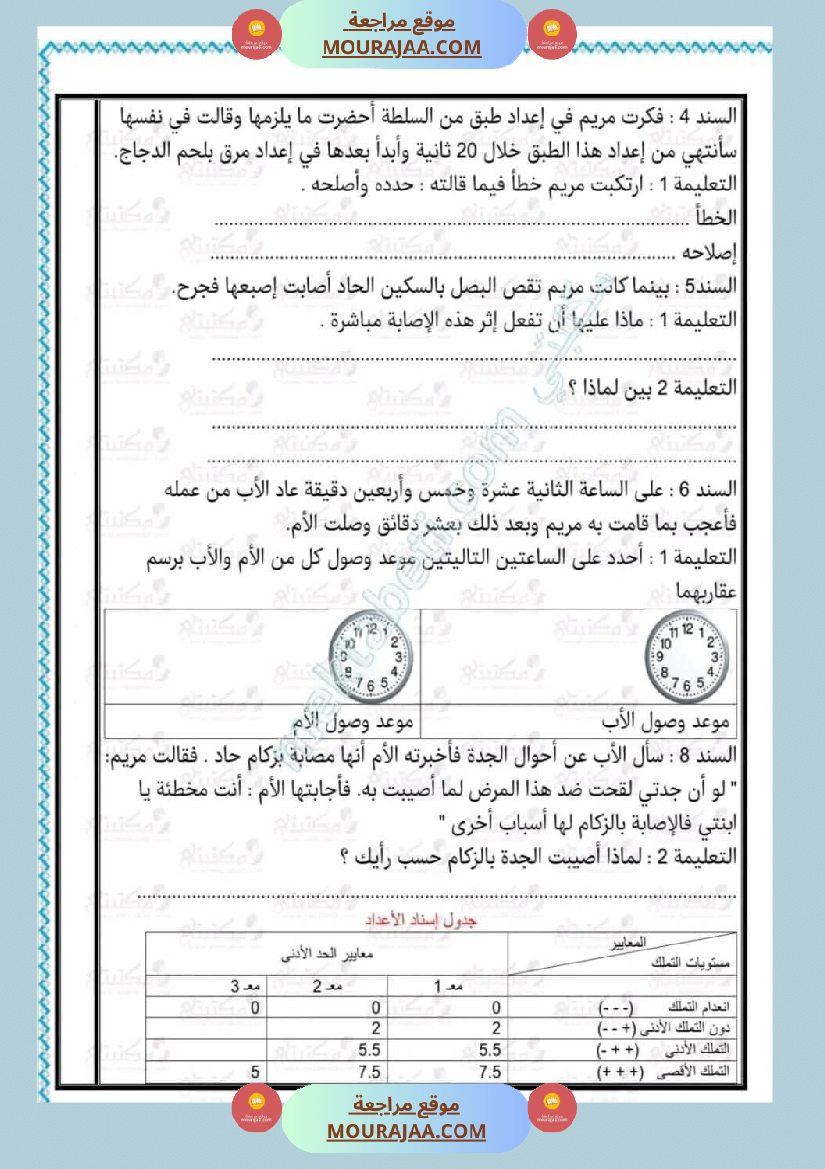 موقع مراجعة
MOURAJAA.COM
السند 4 : فكرت مريم في إعداد طبق من السلطة أحضرت ما يلزمها وقالت في نفسها
سأنتهي من إعداد هذا الطبق خلال 20 ثانية وأبدأ بعدها في إعداد مرق بلحم الدجاج.
التعليمة 1 : ارتكبت مريم خطأ فيما قالته : حدده وأصلحه .
الخطأ ................................................................
إصلاحه ................................................................
السند5 : بينما كانت مريم تقص البصل بالسكين الحاد أصابت إصبعها فجرح.
التعليمة 1 : ماذا عليها أن تفعل إثر هذه الإصابة مباشرة .
................................................................
التعليمة 2 بين لماذا ؟
................................................................
................................................................
السند 6 : على الساعة الثانية عشرة وخمس وأربعين دقيقة عاد الأب من عمله
فأعجب بما قامت به مريم وبعد ذلك بعشر دقائق وصلت الأم.
التعليمة 1 : أحدد على الساعتين التاليتين موعد وصول كل من الأم والأب برسم
عقاربهما
12 1 2 3 4 5 6 7 8 9 10 11
12 1 2 3 4 5 6 7 8 9 10 11
موعد وصول الأب موعد وصول الأم
السند 8 : سأل الأب عن أحوال الجدة فأخبرته الأم أنها مصابة بزكام حاد . فقالت مريم:
" لو أن جدتي لقحت ضد هذا المرض لما أصيبت به. فأجابتها الأم : أنت مخطئة يا
ابنتي فالإصابة بالزكام لها أسباب أخرى "
التعليمة 2 : لماذا أصيبت الجدة بالزكام حسب رأيك ؟
................................................................
جدول إسناد الأعداد
المعايير
مستويات التملك
معايير الحد الأدنى
معـ 1 معـ 2 معـ 3
انعدام التملك (- - -) 0 0 0
دون التملك الأدنى (+ - -) 2 2
التملك الأدنى (+ + -) 5.5 5.5
التملك الأقصى (+ + +) 7.5 7.5 5
موقع مراجعة
MOURAJAA.COM
mektabeti.com مكتبتي